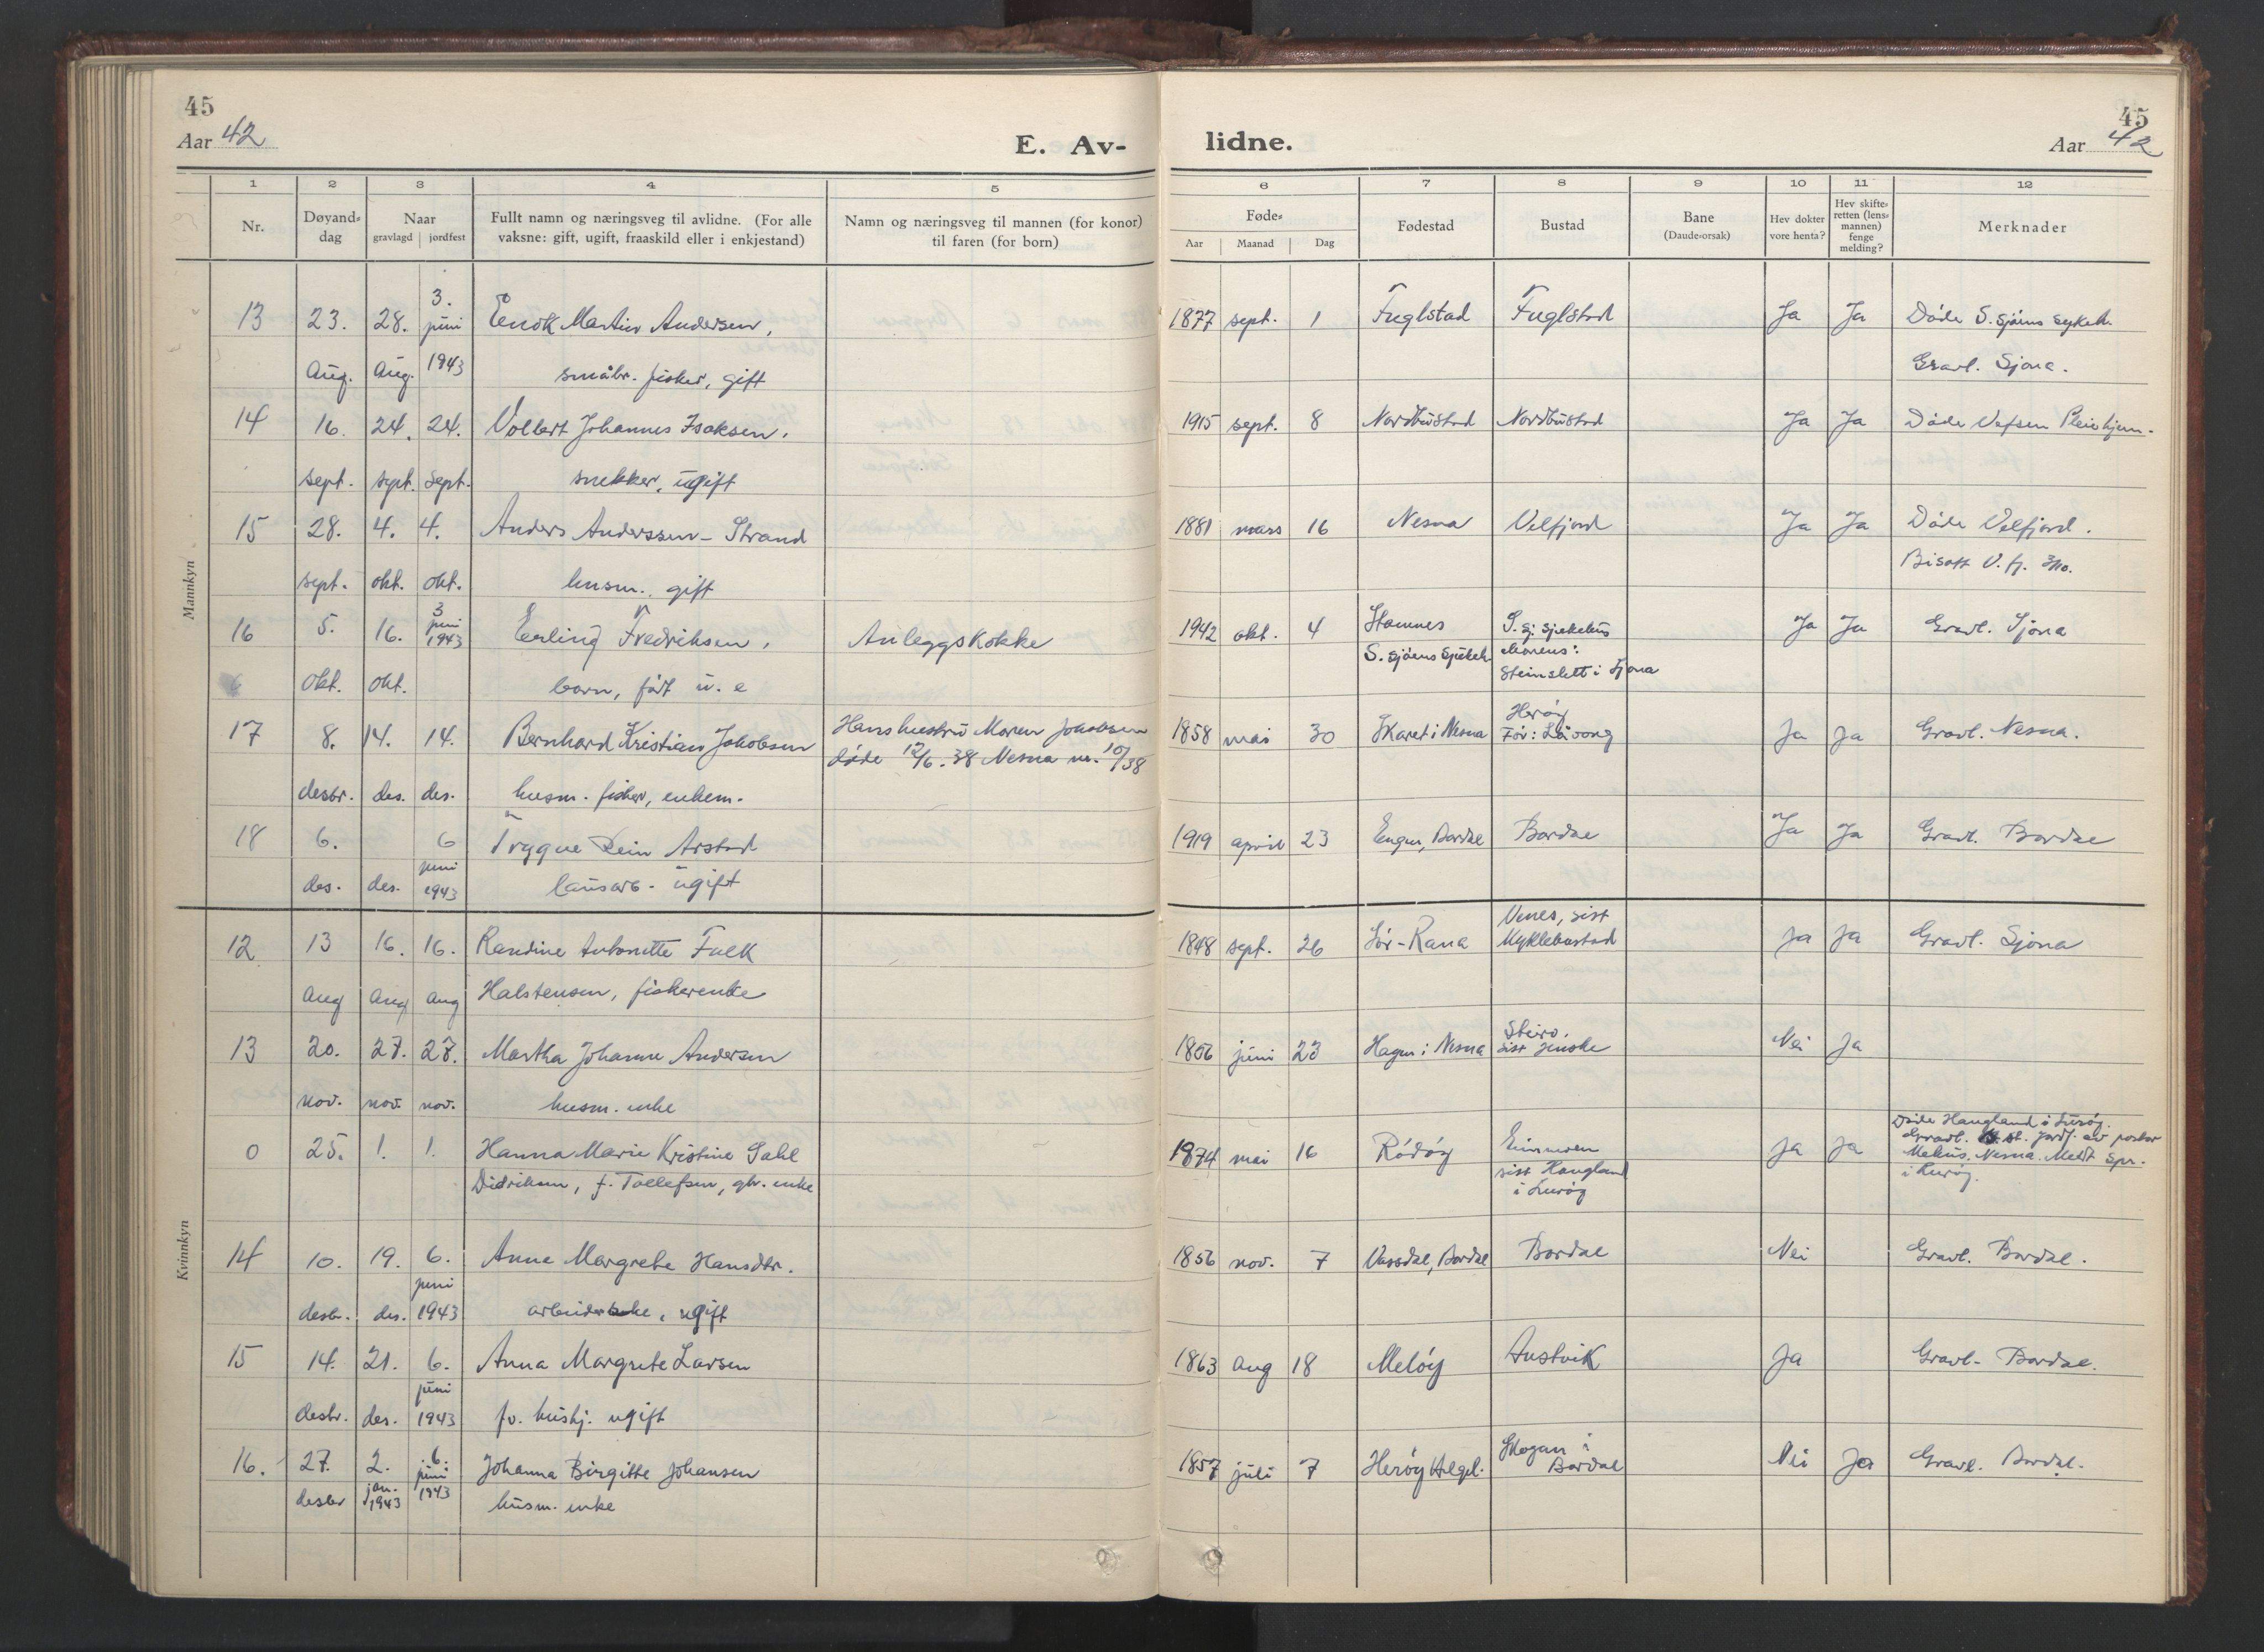 45
Aar 42
E. Av-
1 2 3 4 5
Nr. Døyand-dag Naar gravlagd jordfest Fullt namn og næringsveg til avlidne. (For alle vaksne: gift, ugift, fraaskild eller i enkjestand) Namn og næringsveg til mannen (for konor) til faren (for born)
Mannkyn
13 23. 28. 3. juni Enok Martin Andersen,
Aug. Aug. 1943 småbr. fisker, gift
14 16. 24. 24. Volbert Johannes Isaksen,
sept. sept. sept. snekker, ugift
15 28. 4. 4. Anders Anderssen-Strand
sept. okt. okt. husm., gift
16 5. 16. 3 juni 1943 Erling Fredriksen, Anleggskokke
okt. okt. barn, født u. e
17 8. 14. 14. Bernhard Kristian Jakobsen Hans hustru Maren Jakobsen
døde 12/6.38 Nesna nr. 10/38
desbr. des. des. husm. fisker, enkem.
18 6. 6 Trygve Rein Arstad
des. des. juni 1943 lausarb. ugift
Kvinnkyn
12 13 16. 16. Randine Antonette Falk
Aug Aug Aug Halstensen, fiskerenke
13 20. 27. 27. Martha Johanne Andersen
nov. nov. nov. husm. enke
0 25. 1. 1. Hanna Marie Kristine Dahl
Didriksen, f. Tollefsen, gbr. enke
14 10. 19. 6. Anne Margrete Hansdtr.
juni
desbr. des. 1943 ugift
15 14. 21. 6. Anna Margrete Larsen
juni
desbr. des. 1943 fv. hushj. ugift
16. 27. 2. 6. Johanna Birgitte Johansen
desbr jan. 1943 juni 1943 husm. enke
45
lidne.
Aar 42
6 7 8 9 10 11 12
Føde- Aar Maanad Dag Fødestad Bustad Bane (Daude-orsak) Hev dokter vore henta? Hev skifte-retten (lens-mannen) fenge melding? Merknader
1877 sept. 1 Fuglstad Fuglstad Ja Ja Døde S. Sjøens sykeh.
Gravl. Sjona.
1915 sept. 8 Nordbustad Nordbustad Ja Ja Døde Vefsen Pleiehjem.
1881 mars 16 Nesna Velfjord Ja Ja Døde Velfjord.
Bisatt V. fj. 3/10.
1942 okt. 4 Stamnes S. sj. sjukehus Ja Ja Gravl. Sjona
S. Sjøens Sjukeh. Morens:
Steinslett i Sjona
1858 mai 30 Skaret i Nesna Herøy Ja Ja Gravl. Nesna.
Før: Løvong
1919 april 23 Engen, Bardal Bardal Ja Ja Gravl. Bardal
1848 sept. 26 Sør-Rana Venes, sist Myklebustad Ja Ja Gravl. Sjona
1856 juni 23 Hagen i Nesna sist Nei Ja
1874 mai 16 Rødøy Ja Ja Døde Haugland i Lurøy.
sist Haugland i Lurøy
Nesna. Meldt Spr. i Lurøy.
1856 nov. 7 Vassdal, Bardal Bardal Nei Gravl. Bardal.
1863 Aug 18 Meløy Austvik Ja Gravl. Bardal.
1857 juli 7 Herøy Helgel. Skogan i Bardal Nei Ja Gravl. Bardal.